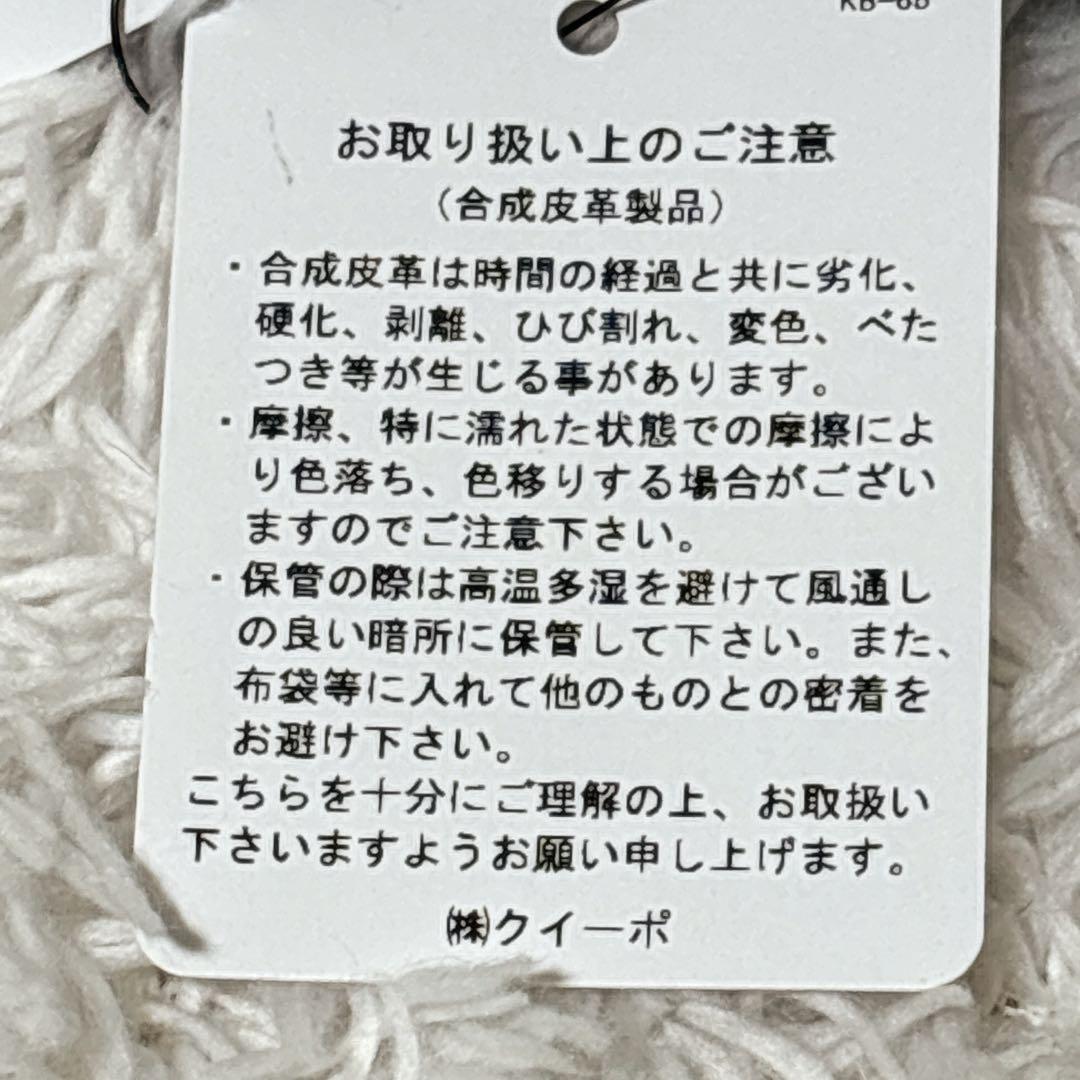 KB-68
お取り扱い上のご注意
（合成皮革製品）
・合成皮革は時間の経過と共に劣化、
硬化、剥離、ひび割れ、変色、べた
つき等が生じる事があります。
・摩擦、特に濡れた状態での摩擦によ
り色落ち、色移りする場合がござい
ますのでご注意下さい。
・保管の際は高温多湿を避けて風通し
の良い暗所に保管して下さい。また、
布袋等に入れて他のものとの密着を
お避け下さい。
こちらを十分にご理解の上、お取扱い
下さいますようお願い申し上げます。
㈱クイーポ